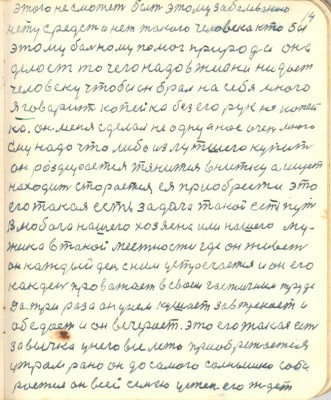 этого не сможет быт этому забалванию
14
нету средста нет такого человека кто бы
этому балному помог природа она
делает то чего надо в жизни надает
человеку чтоби он брал на себя много
Я говарит копейка без его рук не копей
ка. он меня сделал не одну а нас очен много
ему надо что либо из лутшего купит
он роздирается тянится в нитку а ищет
находит стораится ея приобрести это
его такая есть задача такой есть пут
В любога нашего хозяена или нашего му-
жика в такой местности где он живет
он каждый ден с ним устречается и он его
кажден проважает в своем частичним труде
Да три раза он у нем кушает завтрекает и
обедает и он вечерает. Это его такая ест
завычка у него все лето приобретается
утром рано он до самого солнышко соби
рается он всей семею цепен его ждет